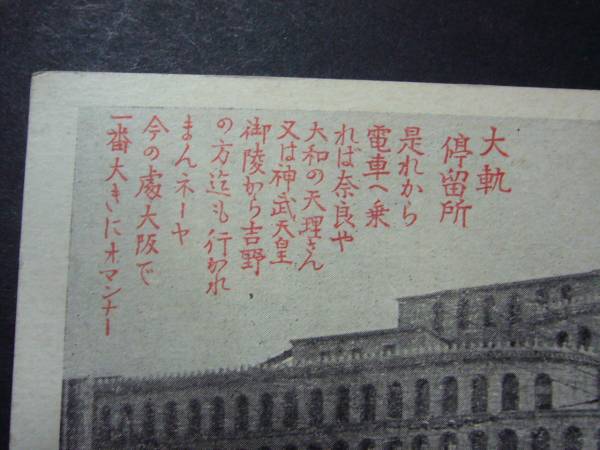 大軌
停留所
是れから
電車へ乗
れば奈良や
大和の天理さん
又は神武天皇
御陵から吉野
の方迄も行かれ
まんネーヤ
今の處大阪で
一番大きにオマンナー